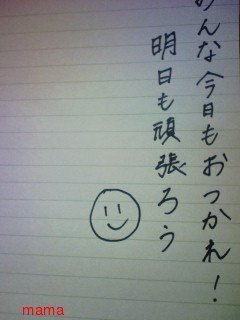 みんな今日もおつかれ!
明日も頑張ろう
mama